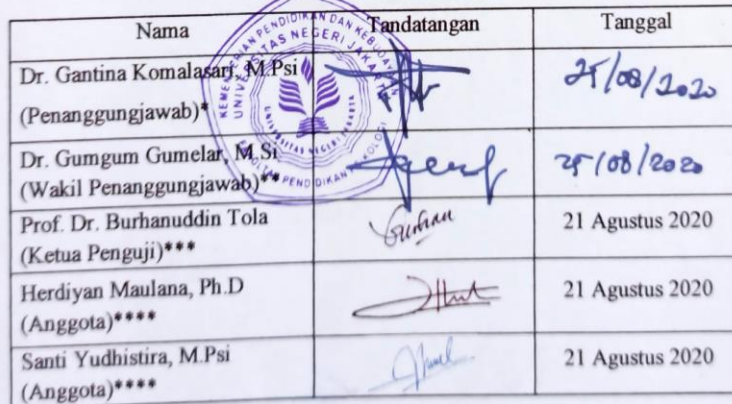 Nama Tandatangan Tanggal
Dr. Gantina Komalasari, M.Psi
(Penanggungjawab)*
25/08/2020
Dr. Gumgum Gumelar, M.Si
(Wakil Penanggungjawab)**
25/08/2020
Prof. Dr. Burhanuddin Tola
(Ketua Penguji)***
21 Agustus 2020
Herdiyan Maulana, Ph.D
(Anggota)****
21 Agustus 2020
Santi Yudhistira, M.Psi
(Anggota)****
21 Agustus 2020
KEMENTERIAN PENDIDIKAN DAN KEBUDAYAAN
UNIVERSITAS NEGERI JAKARTA
UNIVERSITAS NEGERI JAKARTA
FAKULTAS PENDIDIKAN PSIKOLOGI